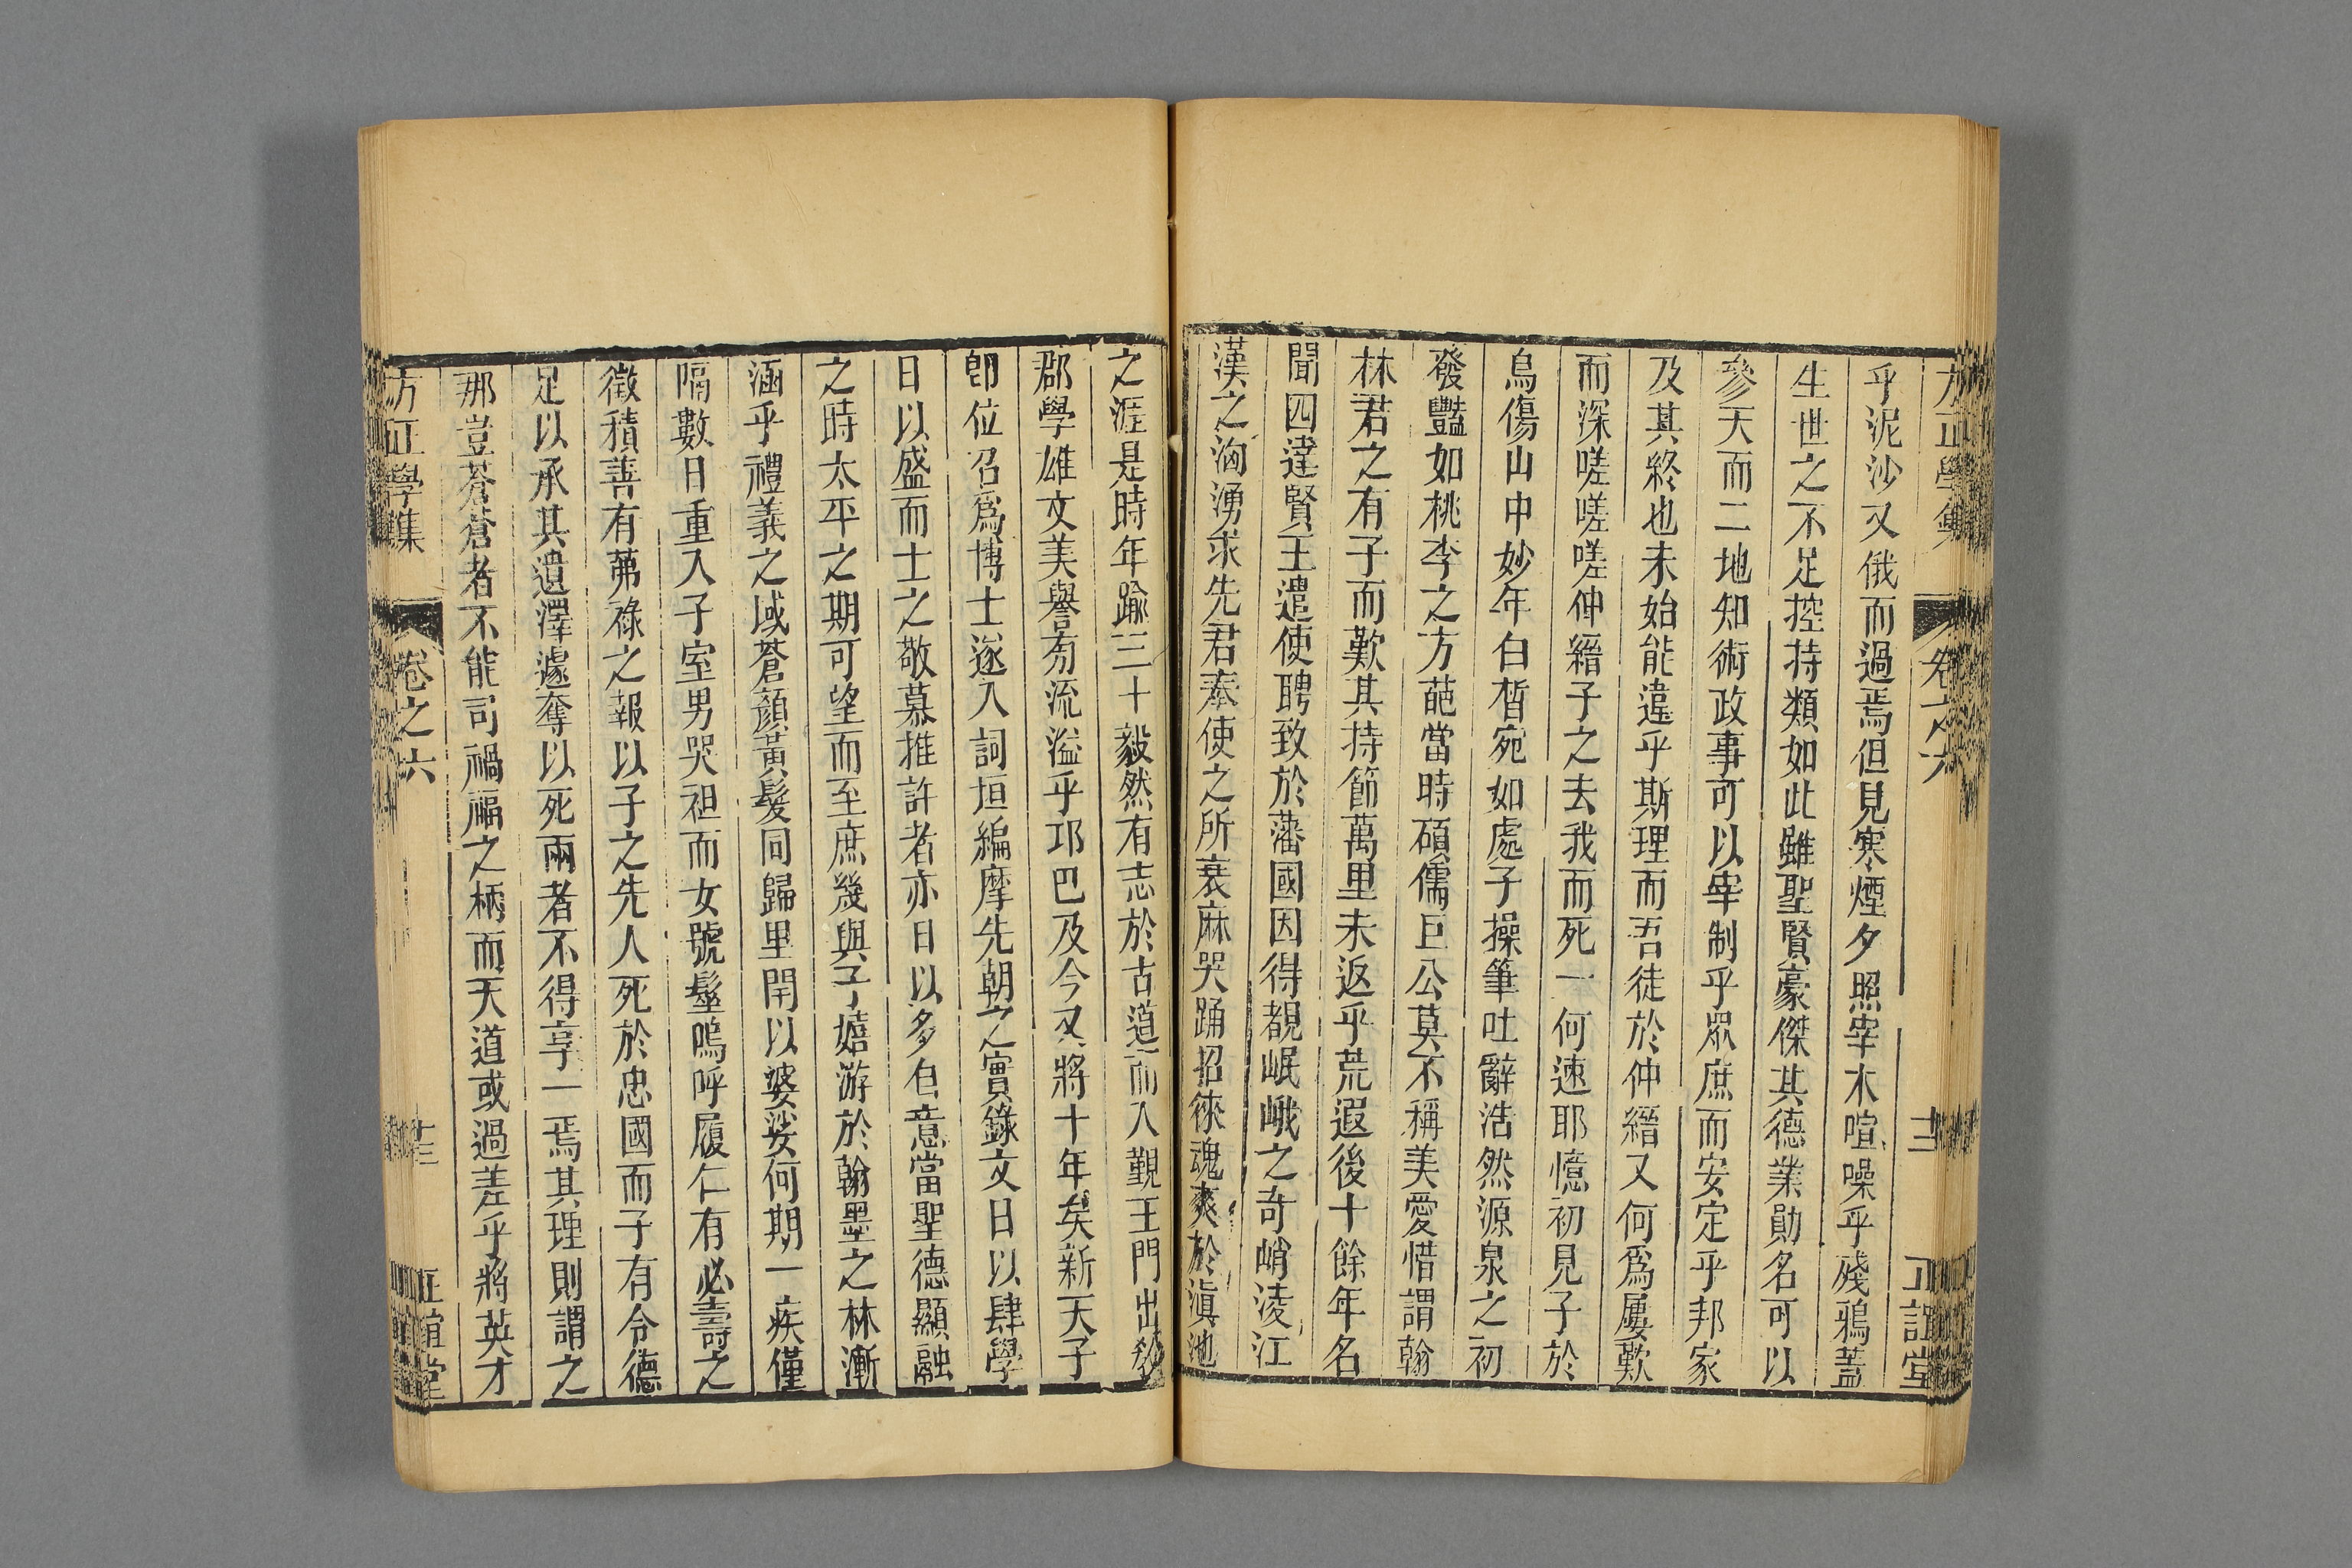 方正學集 卷之六 十二 正誼堂
乎泥沙又俄而過焉但見寒煙夕照宰木喧噪乎殘鴉蓋
生世之不足控持類如此雖聖賢豪傑其德業勛名可以
參天而二地知術政事可以宰制乎眾庶而安定乎邦家
及其終也未始能違乎斯理而吾徒於仲縉又何爲屢歎
而深嗟嗟嗟仲縉子之去我而死一何速耶憶初見子於
烏傷山中妙年白皙宛如處子操筆吐辭浩然源泉之初
發豔如桃李之方葩當時碩儒巨公莫不稱美愛惜謂翰
林君之有子而歎其持節萬里未返乎荒遐後十餘年名
聞四達賢王遣使聘致於藩國因得覩岷峨之奇峭淩江
漢之洶湧求先君奉使之所衰麻哭踊招徠魂爽於滇池
之涯是時年踰三十毅然有志於古道而入覲王門出教
郡學雄文美譽旁流溢乎邛巴及今又將十年矣新天子
卽位召爲博士遂入詞垣編摩先朝之實錄文日以肆學
日以盛而士之敬慕推許者亦日以多自意當聖德顯融
之時太平之期可望而至庶幾與子嬉游於翰墨之林漸
涵乎禮義之域蒼顏黃髮同歸里閈以婆娑何期一疾僅
隔數日重入子室男哭袒而女號髽嗚呼履仁有必壽之
徵積善有茀祿之報以子之先人死於忠國而子有令德
足以承其遺澤遽奪以死兩者不得享一焉其理則謂之
那豈蒼蒼者不能司禍福之柄而天道或過差乎將英才
方正學集 卷之六 十三 正誼堂